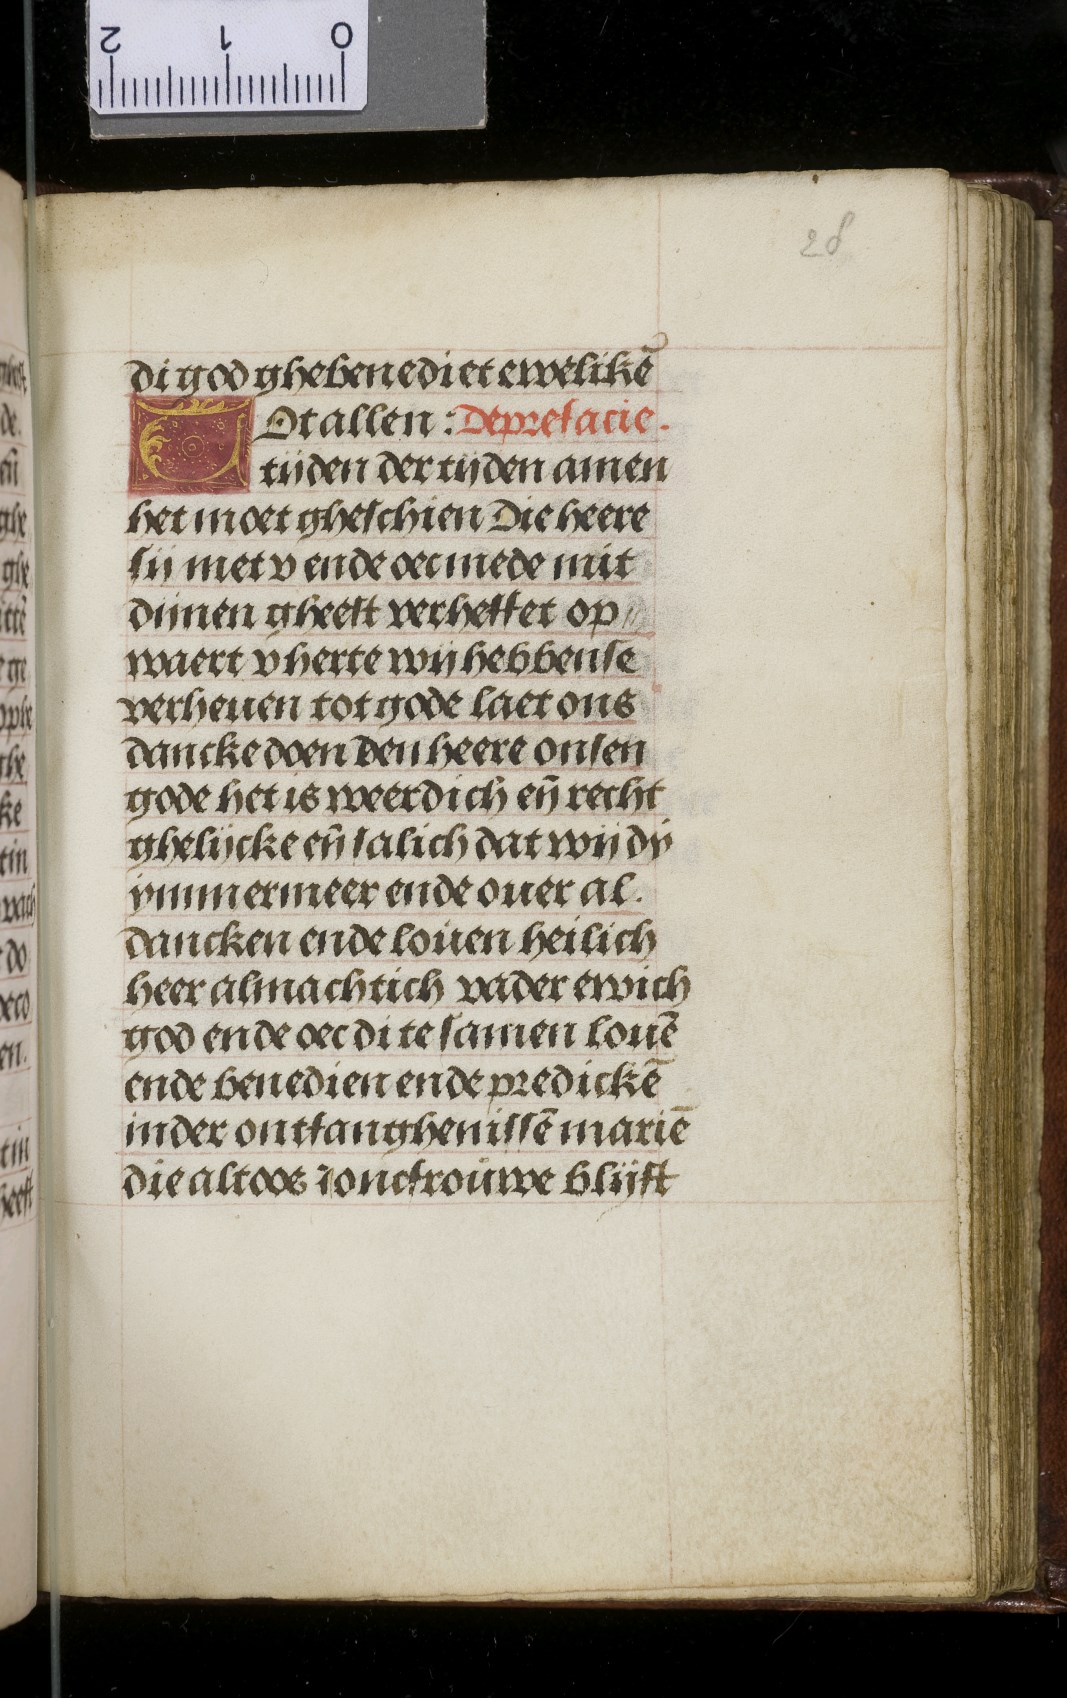 2 1 0
28
di god ghebenediet ewelikē
TOt allen : De prefacie.
tijden der tijden amen
het moet gheschien Die heere
sij met v ende oec mede mit
dijnen gheest verheffet op
waert v herte wij hebbense
verheuen tot gode laet ons
dancke doen den heere onsen
gode het is weerdich eñ recht
ghelijcke eñ salich dat wij dy
ymmermeer ende ouer al.
dancken ende louen heilich
heer almachtich vader ewich
god ende oec di te samen louē
ende benedien ende predickē
inder ontfanghenissē mariē
die altoos ioncfrouwe blijft